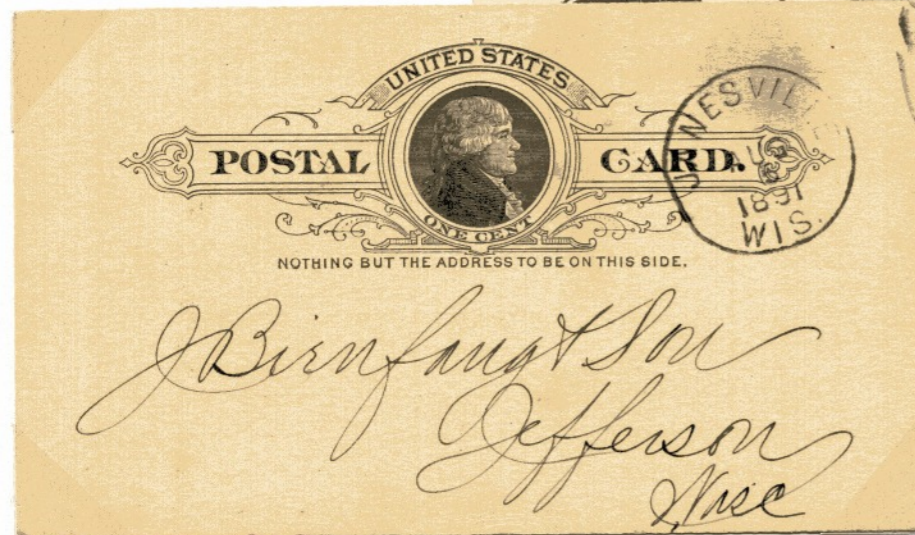 UNITED STATES
POSTAL CARD.
ONE CENT
NOTHING BUT THE ADDRESS TO BE ON THIS SIDE.
JANESVIL
AUG
1891
WIS.
J Bienfang & Son
Jefferson
Wisc